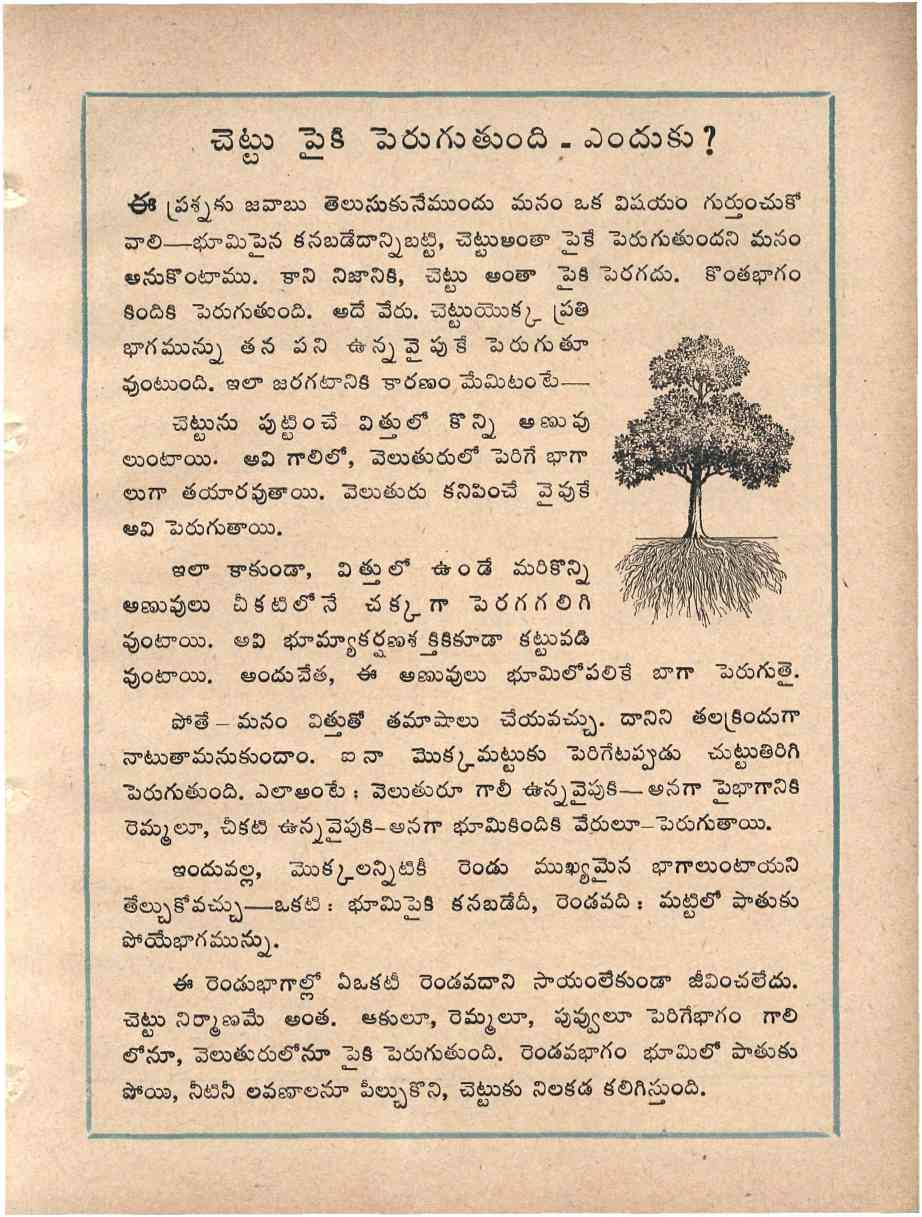 చెట్టు పైకి పెరుగుతుంది - ఎందుకు ?
ఈ ప్రశ్నకు జవాబు తెలుసుకునేముందు మనం ఒక విషయం గుర్తుంచుకో
వాలి—భూమిపైన కనబడేదాన్నిబట్టి, చెట్టుఅంతా పైకే పెరుగుతుందని మనం
అనుకొంటాము. కాని నిజానికి, చెట్టు అంతా పైకి పెరగదు. కొంతభాగం
కిందికి పెరుగుతుంది. అదే వేరు. చెట్టుయొక్క ప్రతి
భాగమున్ను తన పని ఉన్నవైపుకే పెరుగుతూ
వుంటుంది. ఇలా జరగటానికి కారణం మేమిటంటే—
చెట్టును పుట్టించే విత్తులో కొన్ని అణువు
లుంటాయి. అవి గాలిలో, వెలుతురులో పెరిగే భాగా
లుగా తయారవుతాయి. వెలుతురు కనిపించే వైపుకే
అవి పెరుగుతాయి.
ఇలా కాకుండా, విత్తులో ఉండే మరికొన్ని
అణువులు చీకటిలోనే చక్కగా పెరగగలిగి
వుంటాయి. అవి భూమ్యాకర్షణశక్తికికూడా కట్టువడి
వుంటాయి. అందుచేత, ఈ అణువులు భూమిలోపలికే బాగా పెరుగుతై.
పోతే – మనం విత్తుతో తమాషాలు చేయవచ్చు. దానిని తలక్రిందుగా
నాటుతామనుకుందాం. ఐనా మొక్కమట్టుకు పెరిగేటప్పుడు చుట్టుతిరిగి
పెరుగుతుంది. ఎలాఅంటే : వెలుతురూ గాలీ ఉన్నవైపుకి— అనగా పైభాగానికి
రెమ్మలూ, చీకటి ఉన్నవైపుకి–అనగా భూమికిందికి వేరులూ–పెరుగుతాయి.
ఇందువల్ల, మొక్కలన్నిటికీ రెండు ముఖ్యమైన భాగాలుంటాయని
తేల్చుకోవచ్చు—ఒకటి : భూమిపైకి కనబడేదీ, రెండవది : మట్టిలో పాతుకు
పోయేభాగమున్ను.
ఈ రెండుభాగాల్లో ఏఒకటీ రెండవదాని సాయంలేకుండా జీవించలేదు.
చెట్టు నిర్మాణమే అంత. ఆకులూ, రెమ్మలూ, పువ్వులూ పెరిగేభాగం గాలి
లోనూ, వెలుతురులోనూ పైకి పెరుగుతుంది. రెండవభాగం భూమిలో పాతుకు
పోయి, నీటినీ లవణాలనూ పీల్చుకొని, చెట్టుకు నిలకడ కలిగిస్తుంది.